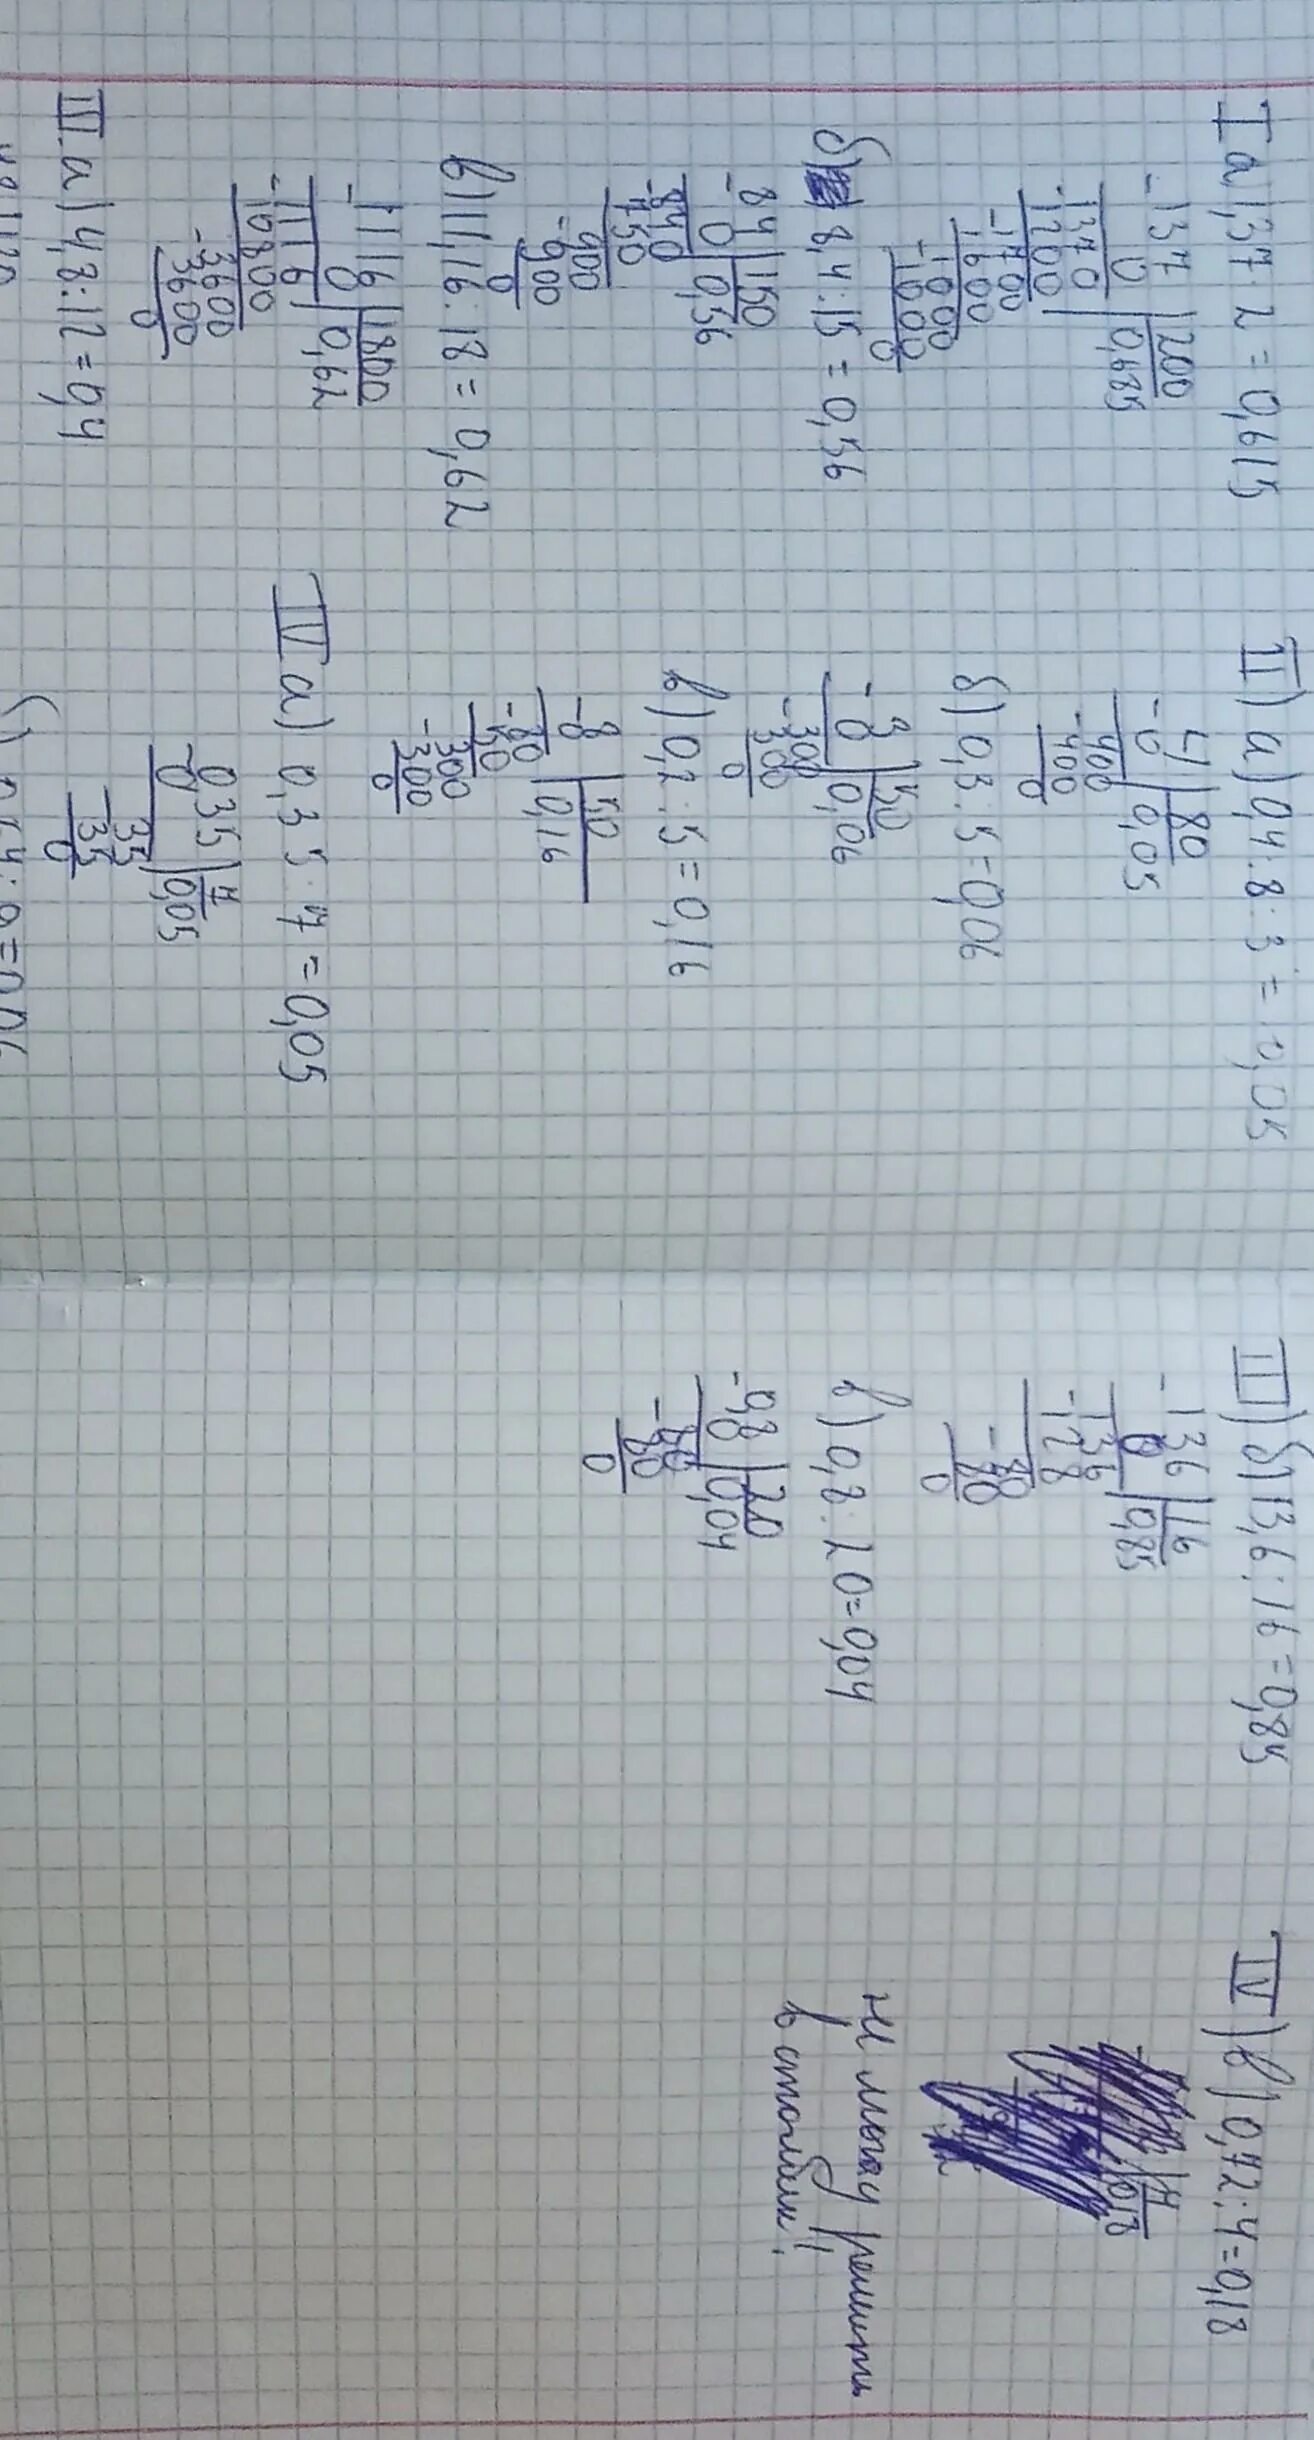 I a) 1,37:2=0,615
-137|200
0|0,685
1370
-1200
-1700
1600
-1000
1000
0
б) 8,4:15=0,56
-84|150
0|0,56
-840
750
-900
900
0
в) 11,16:18=0,62
-1116|1800
0|0,62
-11160
10800
-3600
3600
0
III a) 4,8:12=0,4
II) a) 0,4:8:3=0,05
4|80
-0|0,05
400
-400
0
б) 0,3:5=0,06
-3|50
0|0,06
-300
300
0
в) 0,2:5=0,16
-8|50
0|0,16
-80
50
-300
300
0
IV a) 0,35:7=0,05
0,35|7
-0|0,05
35
-35
0
III) б) 13,6:16=0,85
-136|16
0|0,85
136
-128
-80
80
0
в) 0,8:20=0,04
-0,8|20
0|0,04
-80
80
0
IV) в) 0,72:4=0,18
4
0,18
не могу решить
в столбик!